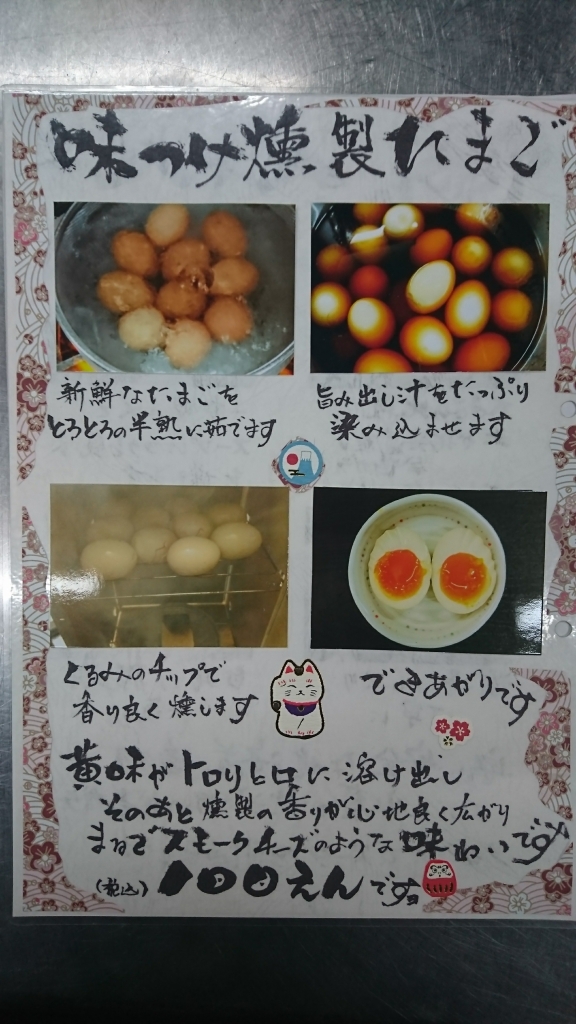 味つけ燻製たまご
新鮮なたまごを
とろとろの半熟に茹でます
旨み出し汁をたっぷり
染み込ませます
くるみのチップで
香り良く燻します
できあがりです
黄味がトロリと口に溶け出し
そのあと燻製の香りが心地良く広がり
まるでスモークチーズのような味わいです
(税込)100えんです。